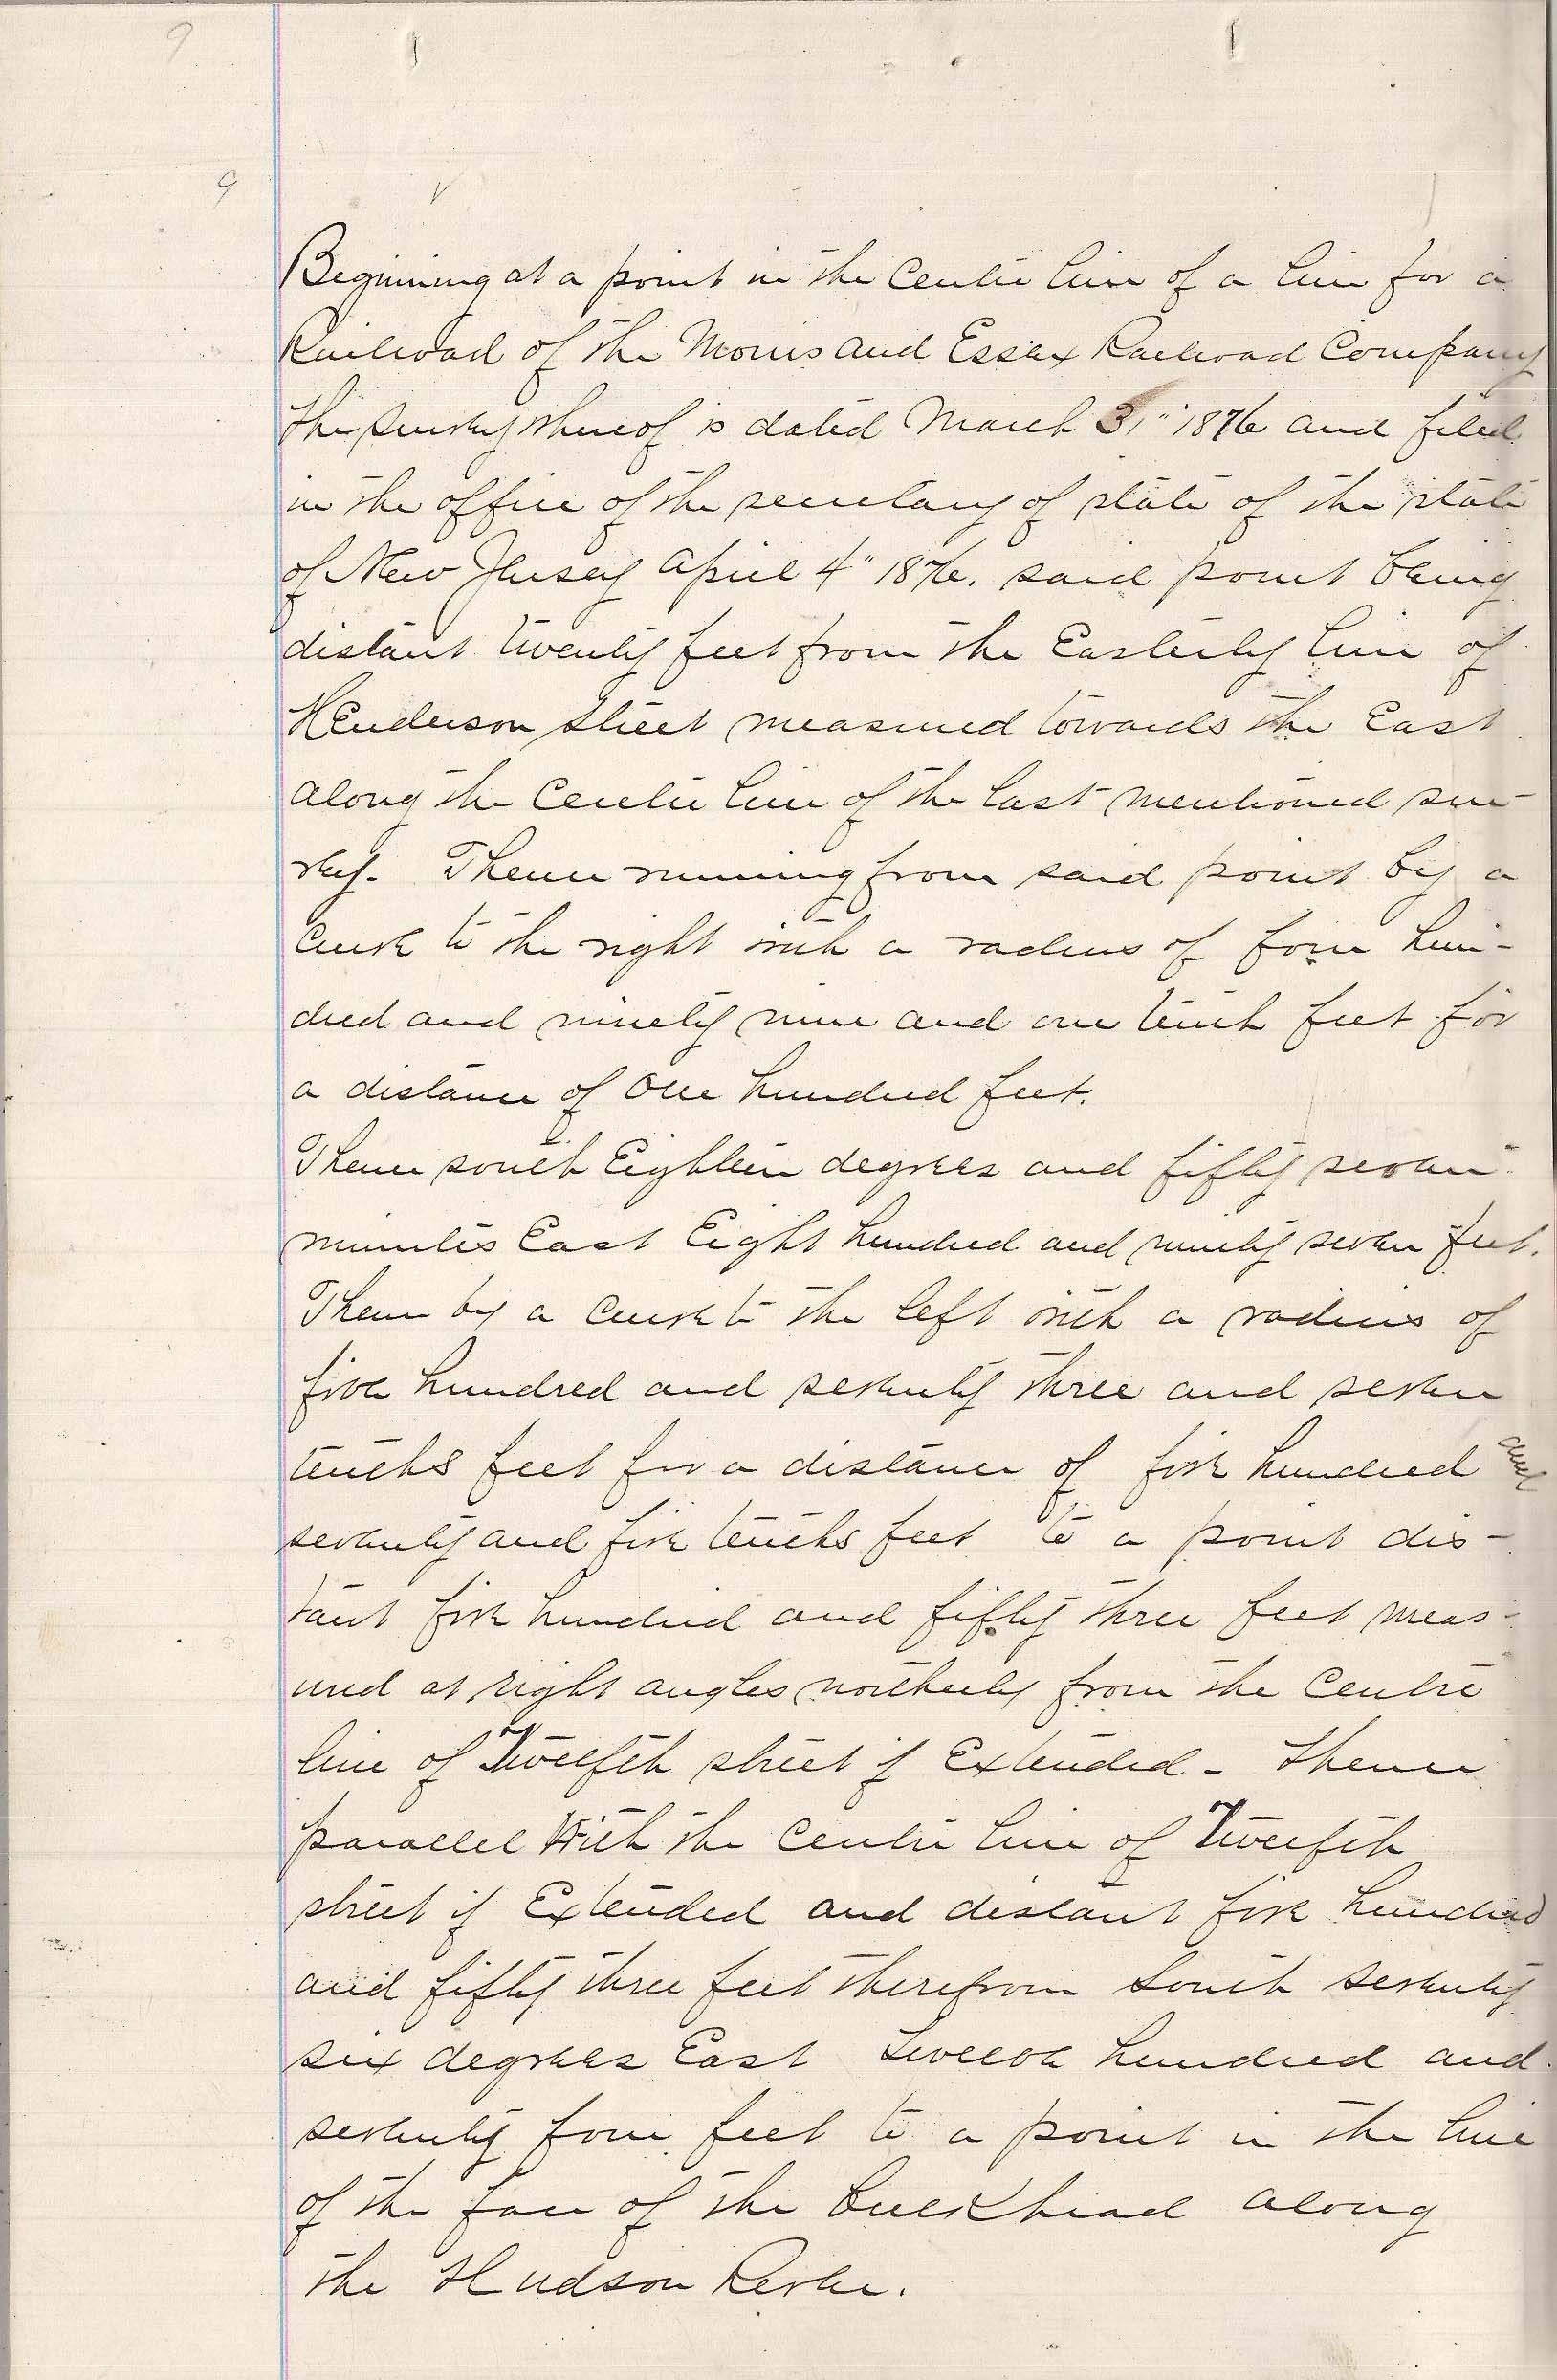 9
9
Beginning at a point in the Centre line of a line for a
Railroad of the Morris and Essex Railroad Company
the survey whereof is dated March 31" 1876 and filed
in the office of the secretary of state of the state
of New Jersey April 4" 1876. said point being
distant twenty feet from the Easterly line of
Henderson street measured towards the East
along the Centre line of the last mentioned sur-
vey. Thence running from said point by a
curve to the right with a radius of four hun-
dred and ninety nine and one tenth feet for
a distance of One hundred feet.
Thence south Eighteen degrees and fifty seven
minutes East Eight hundred and ninety seven feet.
Thence by a curve to the left with a radius of
five hundred and seventy three and seven
tenths feet for a distance of five hundred and
seventy and five tenths feet to a point dis-
tant five hundred and fifty three feet meas-
ured at right angles northerly from the Centre
line of Twelfth street if Extended - thence
parallel With the Centre line of Twelfth
street if Extended and distant five hundred
and fifty three feet therefrom South seventy
six degrees East Twelve hundred and
seventy four feet to a point in the line
of the face of the bulkhead along
the Hudson River.